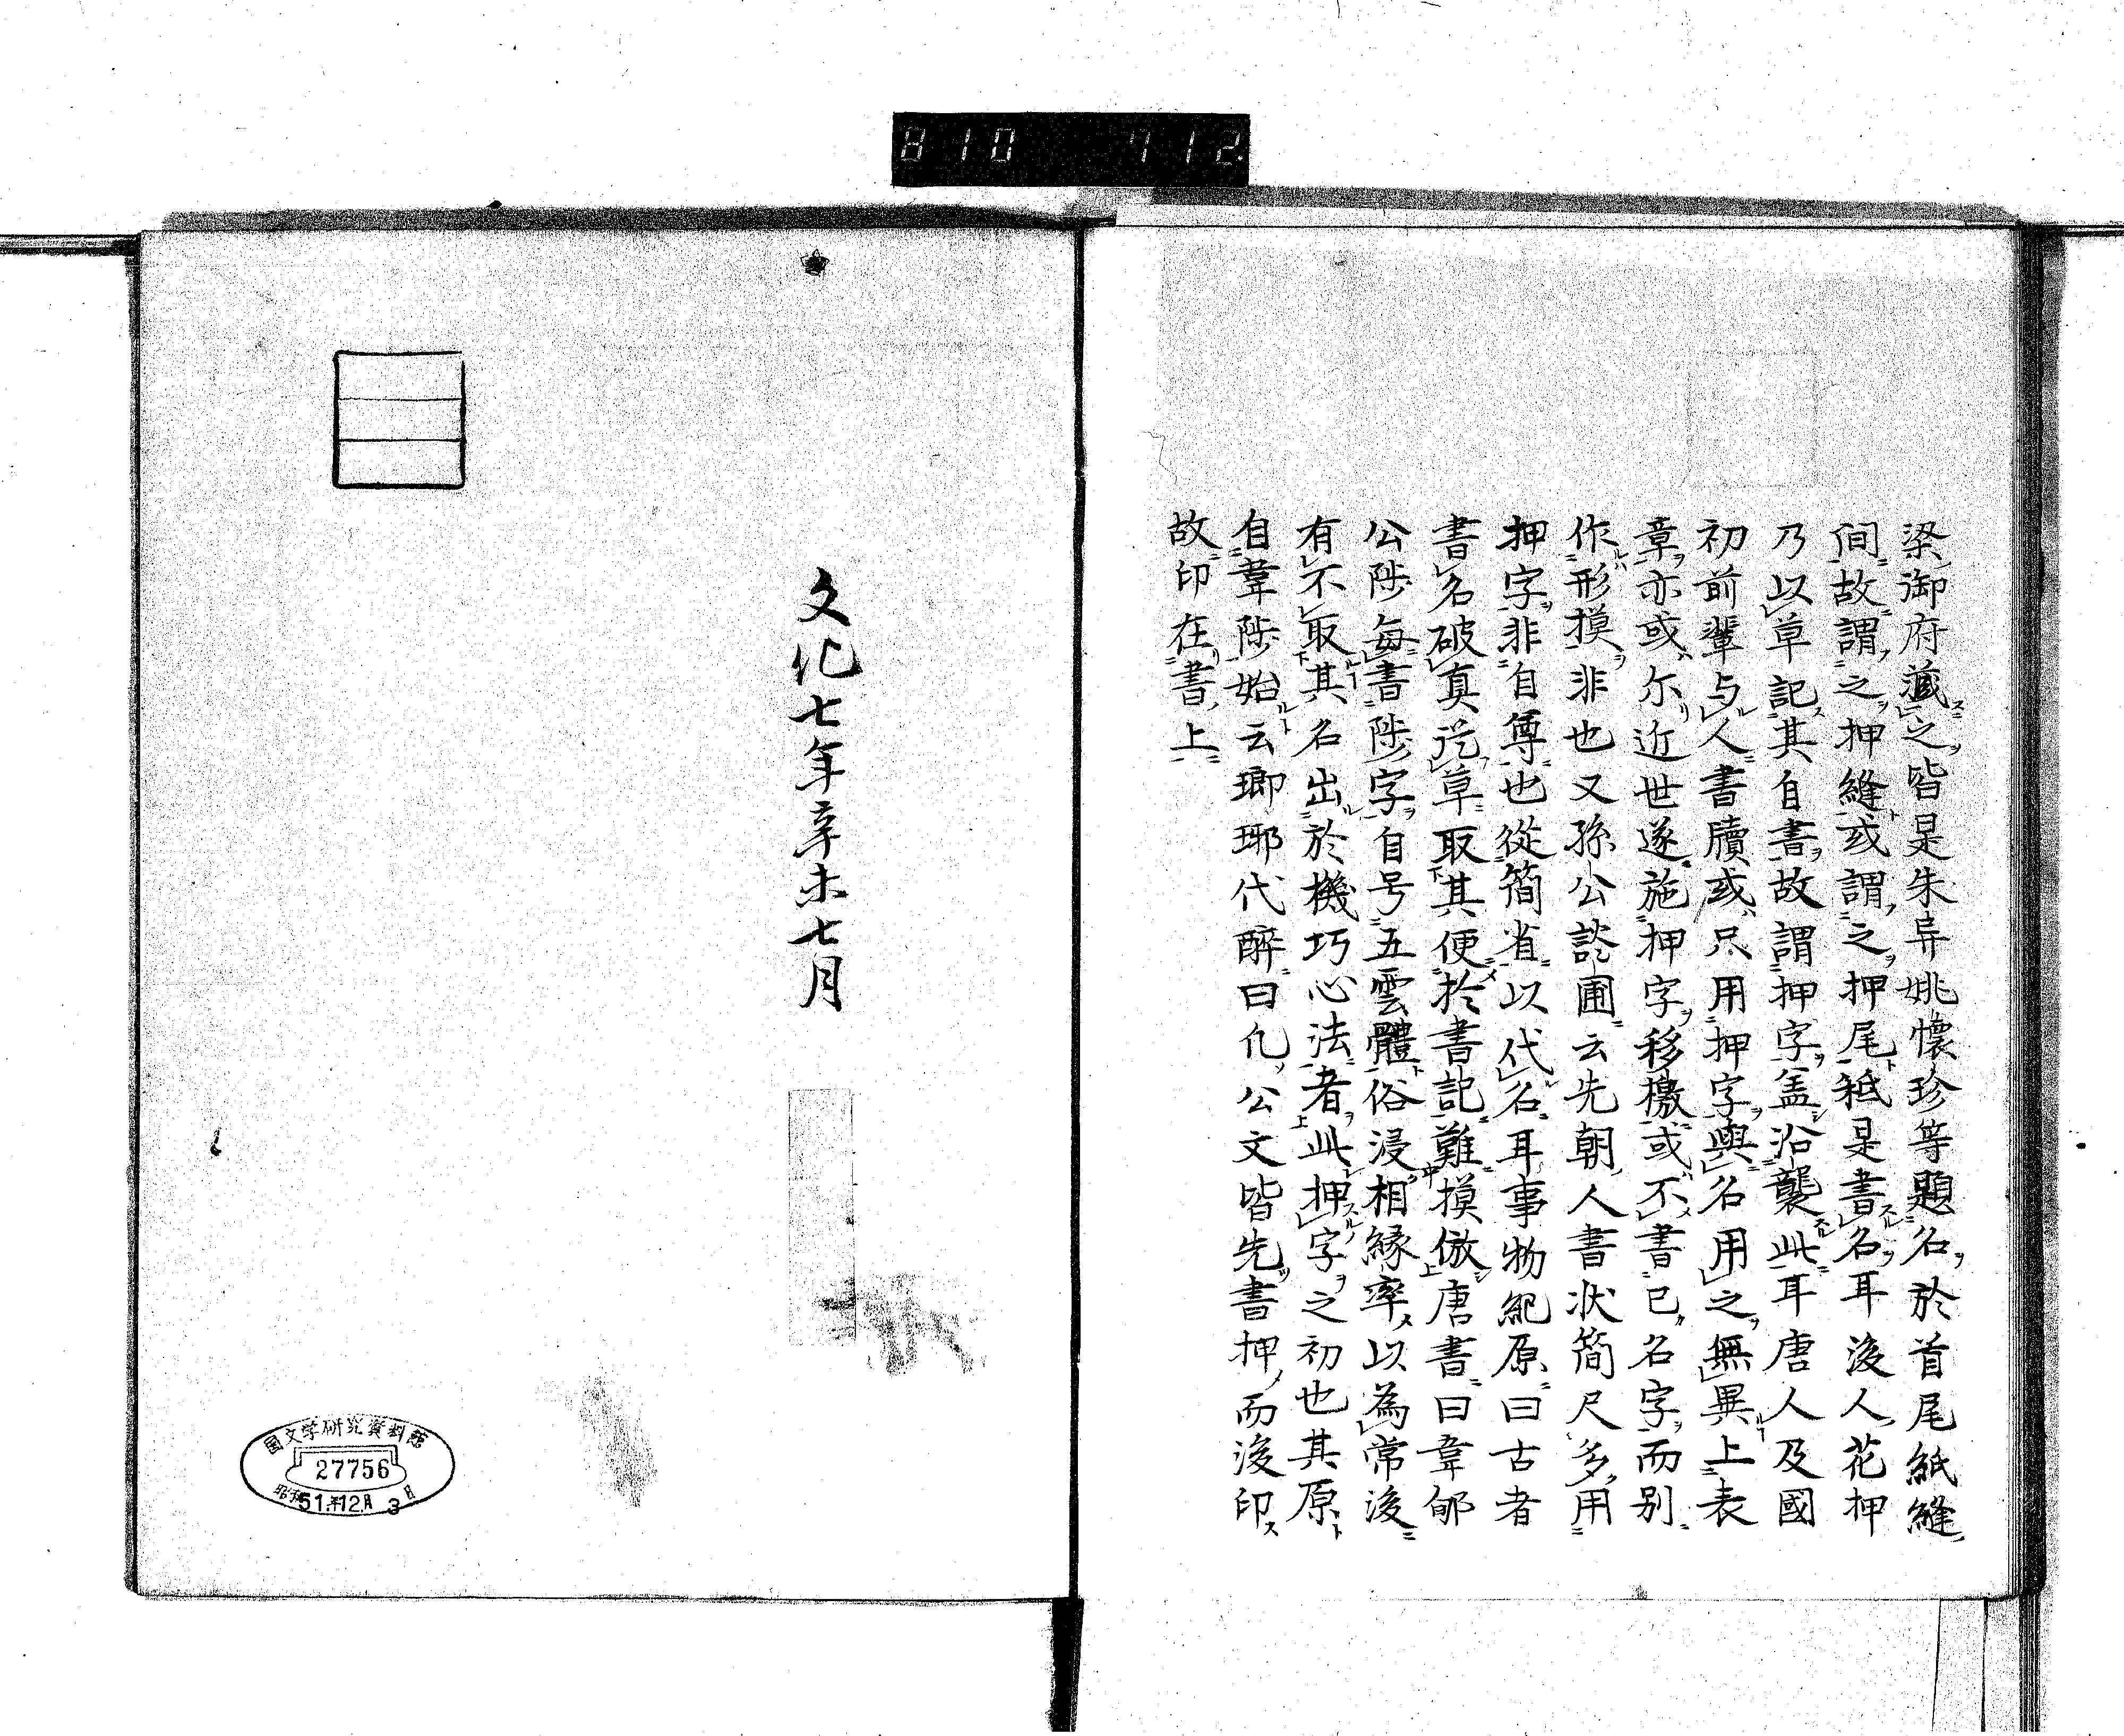 810 712
梁御府藏之皆是朱异姚懷珍等題名於首尾紙縫
間故謂之押縫或謂之押尾秪是書名耳後人花押
乃以草記其自書故謂押字盖沿襲此耳唐人及國
初前輩与人書牘或只用押字與名用之無異上表
章亦或尔近世遂施押字移檄或不書己名字而別
作形摸非也又孫公談圃云先朝人書状簡尺多用
押字非自尊也從簡省以代名耳事物紀原曰古者
書名破真從草取其便於書記難摸倣唐書曰韋郇
公陟每書陟字自号五雲體俗浸相緣率以為常後
有不取其名出於機巧心法者此押字之初也其原
自韋陟始云瑯琊代醉曰凢公文皆先書押而後印
故印在書上
文化七年辛未七月
国文学研究資料館
27756
昭和51年12月3日